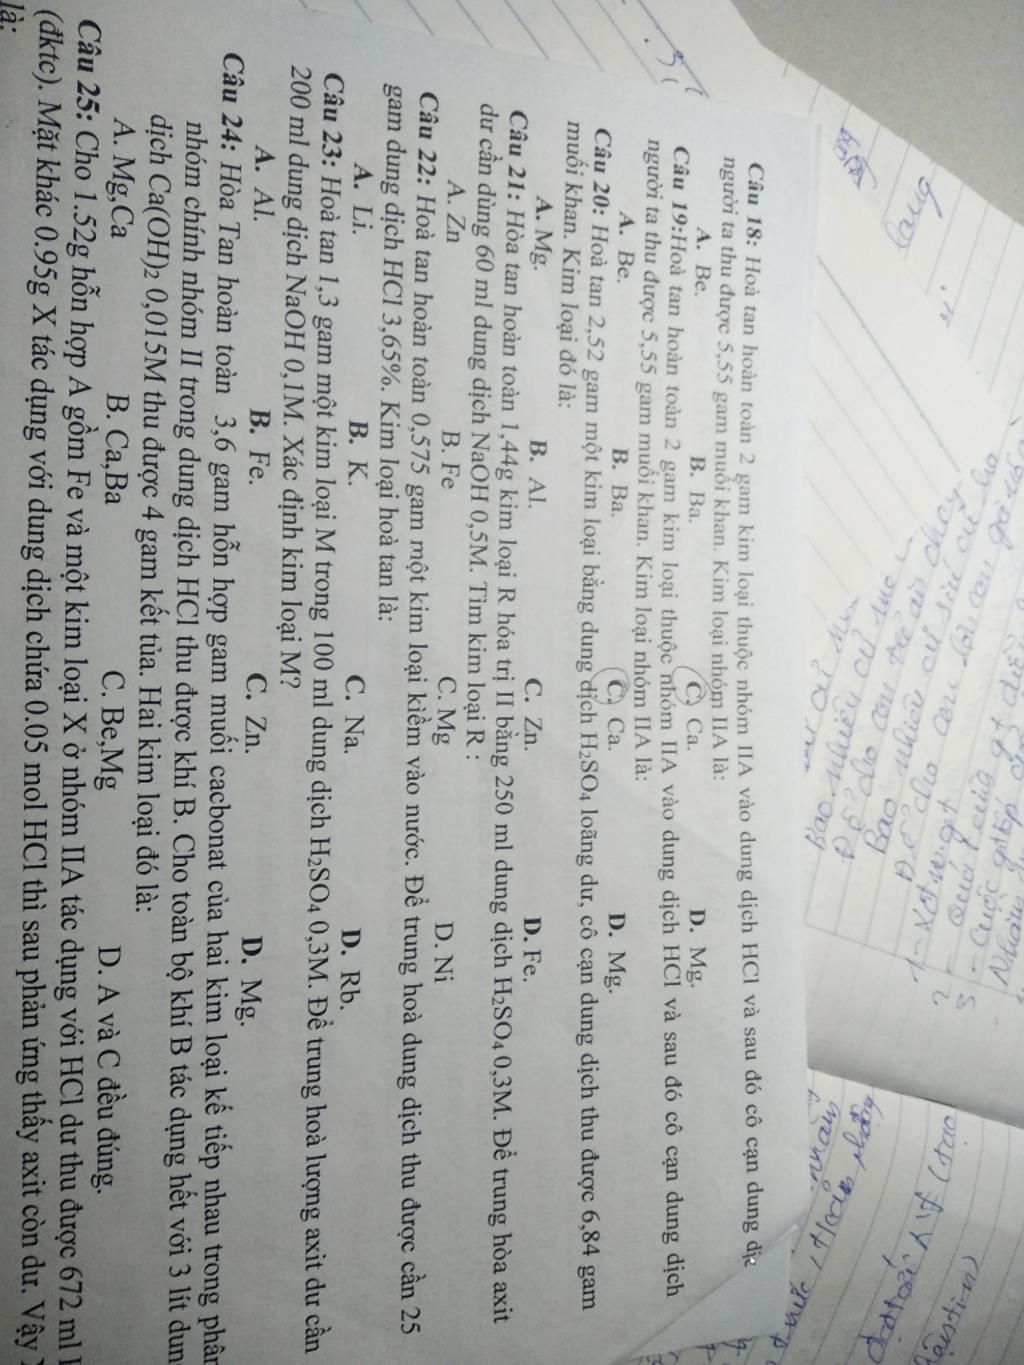 Câu 18: Hoà tan hoàn toàn 2 gam kim loại thuộc nhóm IIA vào dung dịch HCl và sau đó cô cạn dung dịc
người ta thu được 5,55 gam muối khan. Kim loại nhóm IIA là:
A. Be. B. Ba. C. Ca. D. Mg.
Câu 19:Hoà tan hoàn toàn 2 gam kim loại thuộc nhóm IIA vào dung dịch HCl và sau đó cô cạn dung dịch
người ta thu được 5,55 gam muối khan. Kim loại nhóm IIA là:
A. Be. B. Ba. C. Ca. D. Mg.
Câu 20: Hoà tan 2,52 gam một kim loại bằng dung dịch H₂SO₄ loãng dư, cô cạn dung dịch thu được 6,84 gam
muối khan. Kim loại đó là:
A. Mg. B. Al. C. Zn. D. Fe.
Câu 21: Hòa tan hoàn toàn 1,44g kim loại R hóa trị II bằng 250 ml dung dịch H₂SO₄ 0,3M. Để trung hòa axit
dư cần dùng 60 ml dung dịch NaOH 0,5M. Tìm kim loại R :
A. Zn B. Fe C. Mg D. Ni
Câu 22: Hoà tan hoàn toàn 0,575 gam một kim loại kiềm vào nước. Để trung hoà dung dịch thu được cần 25
gam dung dịch HCl 3,65%. Kim loại hoà tan là:
A. Li. B. K. C. Na. D. Rb.
Câu 23: Hoà tan 1,3 gam một kim loại M trong 100 ml dung dịch H₂SO₄ 0,3M. Để trung hoà lượng axit dư cần
200 ml dung dịch NaOH 0,1M. Xác định kim loại M?
A. Al. B. Fe. C. Zn. D. Mg.
Câu 24: Hòa Tan hoàn toàn 3,6 gam hỗn hợp gam muối cacbonat của hai kim loại kế tiếp nhau trong phân
nhóm chính nhóm II trong dung dịch HCl thu được khí B. Cho toàn bộ khí B tác dụng hết với 3 lít dun
dịch Ca(OH)₂ 0,015M thu được 4 gam kết tủa. Hai kim loại đó là:
A. Mg,Ca B. Ca,Ba C. Be,Mg D. A và C đều đúng.
Câu 25: Cho 1.52g hỗn hợp A gồm Fe và một kim loại X ở nhóm IIA tác dụng với HCl dư thu được 672 ml
(đktc). Mặt khác 0.95g X tác dụng với dung dịch chứa 0.05 mol HCl thì sau phản ứng thấy axit còn dư. Vậy
là: